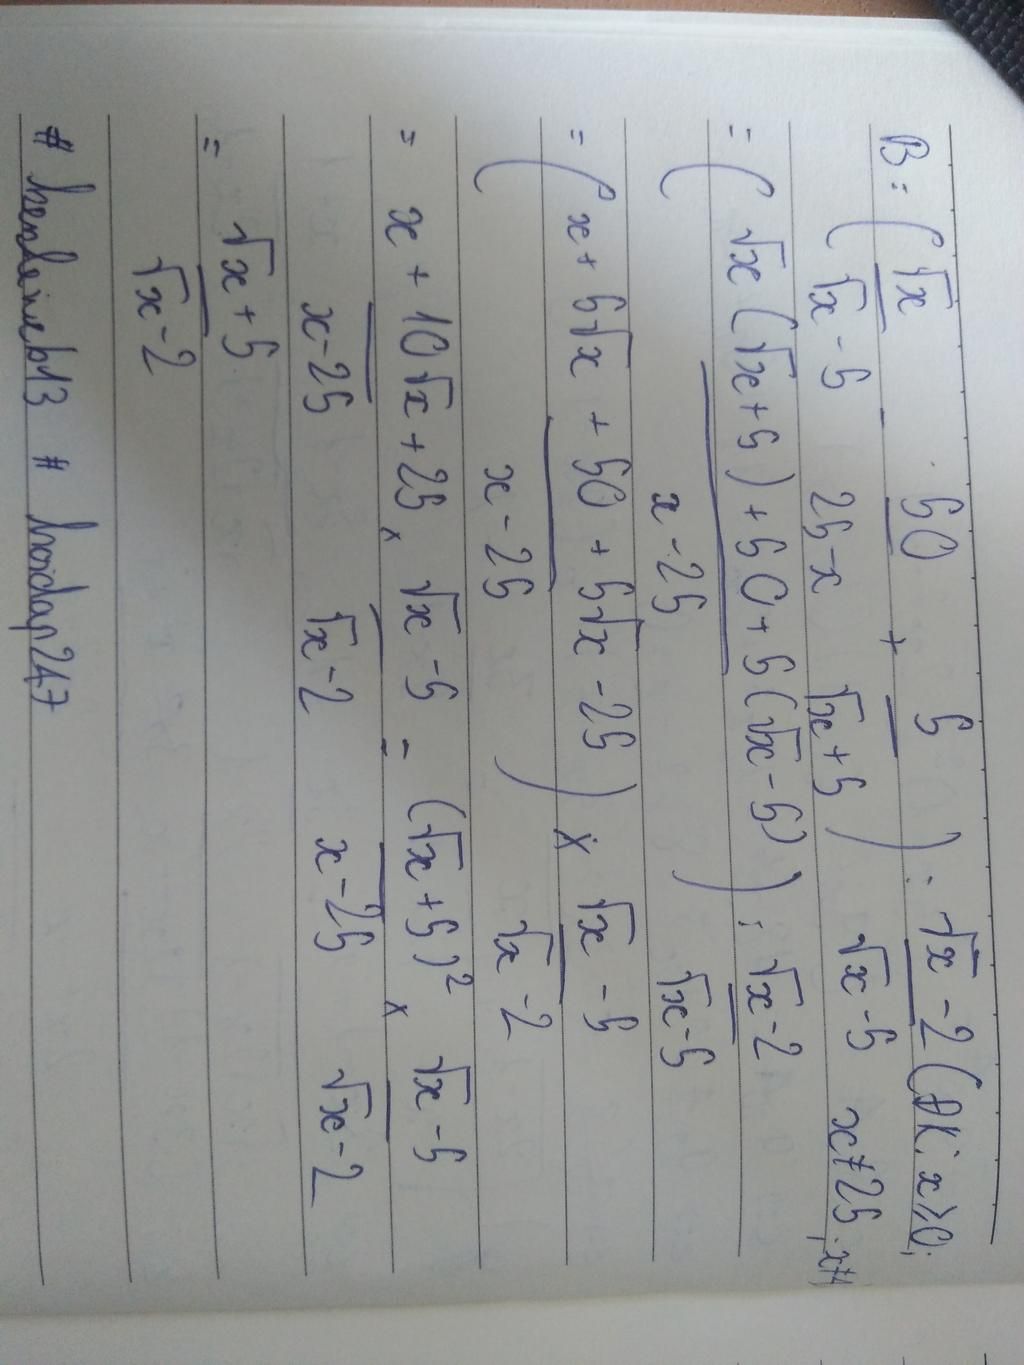 B = ( √x / (√x - 5) - 50 / (25-x) + 5 / (√x+5) ) : (√x - 2) / (√x - 5) (ĐK: x ≥ 0; x ≠ 25, x ≠ 4
= ( (√x (√x+5) + 50 + 5(√x - 5)) / (x - 25) ) : (√x - 2) / (√x - 5)
= ( (x + 5√x + 50 + 5√x - 25) / (x - 25) ) × (√x - 5) / (√x - 2)
= (x + 10√x + 25) / (x - 25) × (√x - 5) / (√x - 2) = (√x + 5)² / (x - 25) × (√x - 5) / (√x - 2)
= (√x + 5) / (√x - 2)
# henleineb13 # hoidap247